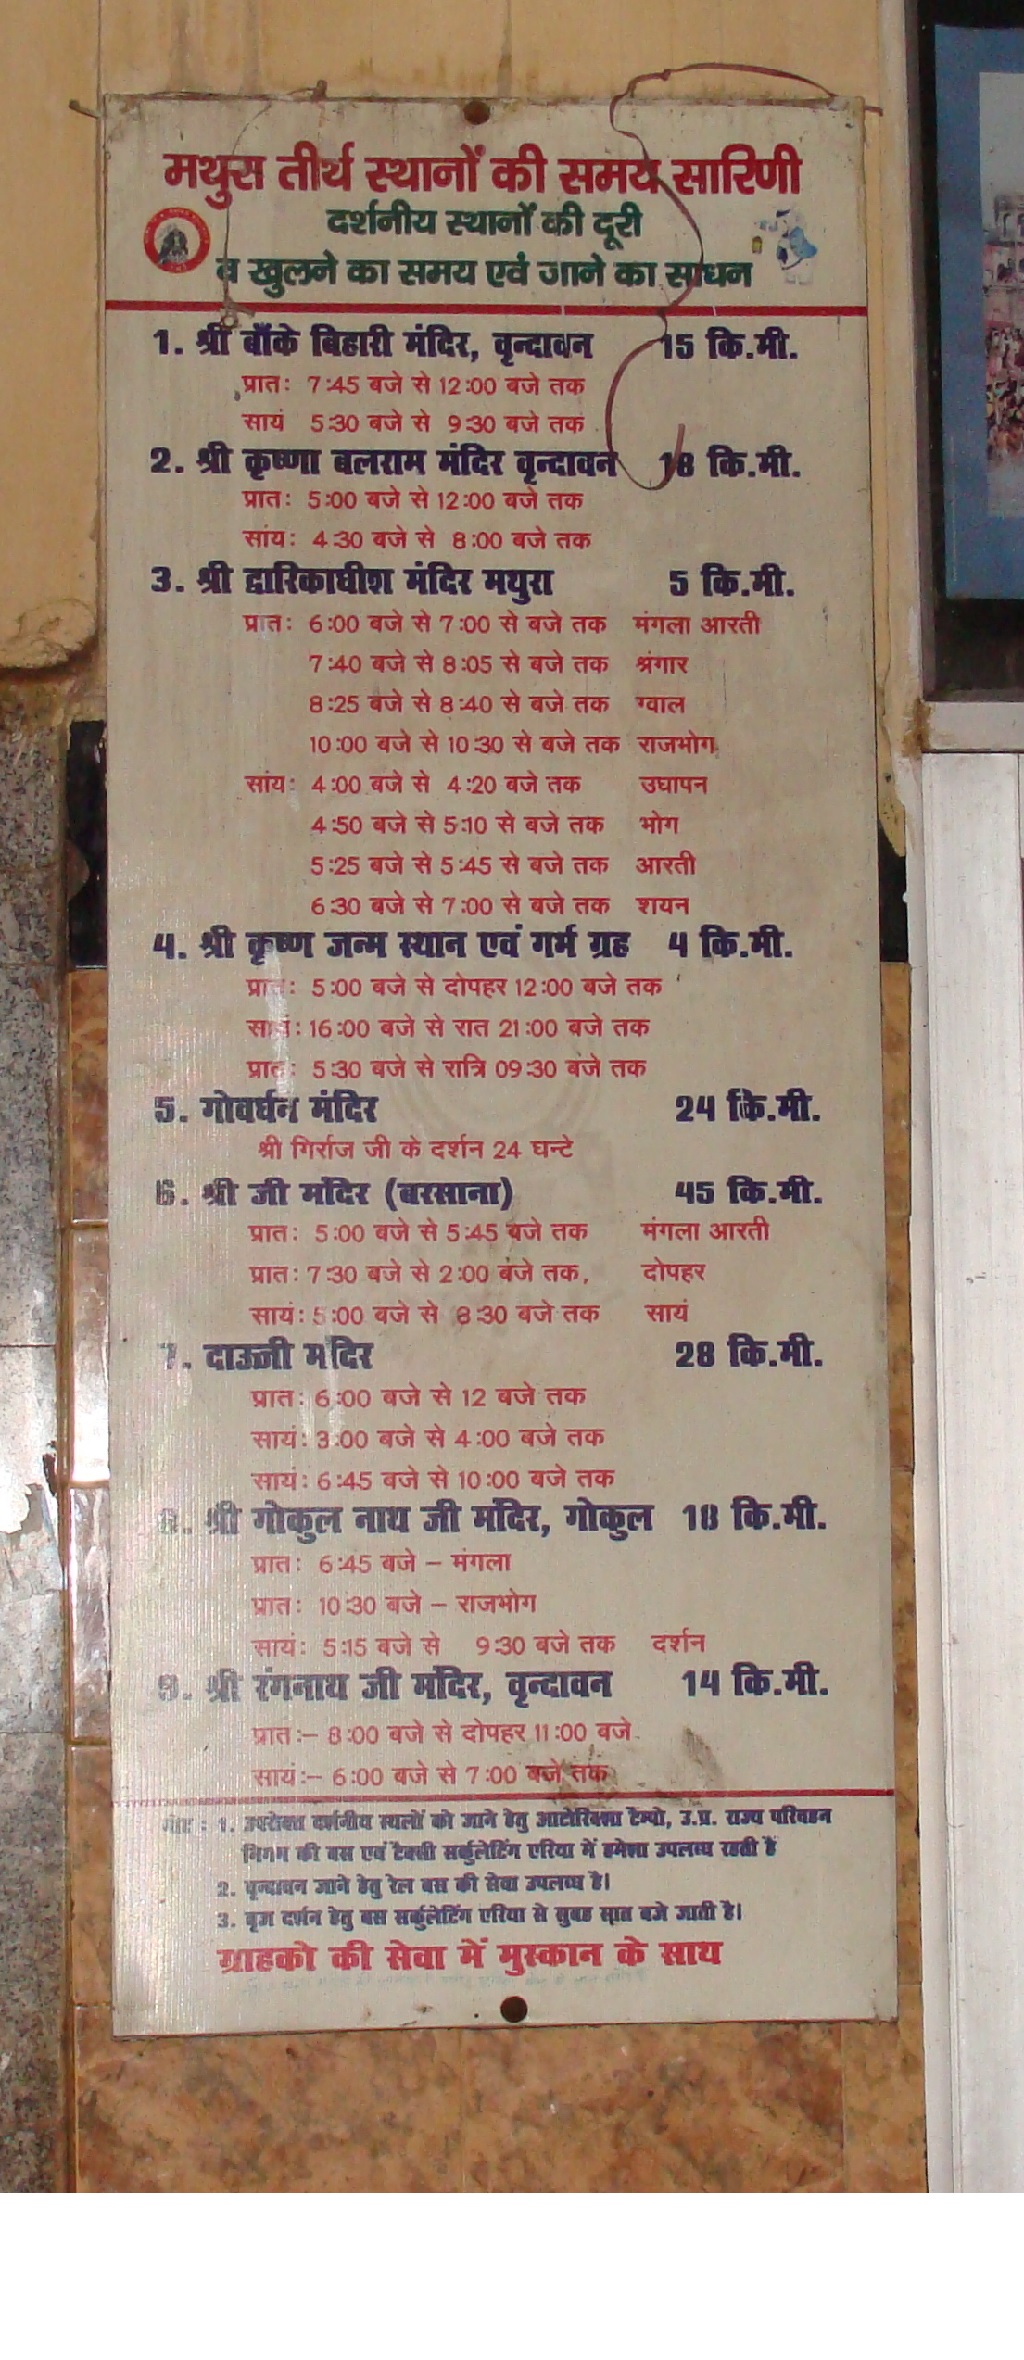 मथुरा तीर्थ स्थानों की समय सारिणी
दर्शनीय स्थानों की दूरी
व खुलने का समय एवं जाने का साधन
1. श्री बाँके बिहारी मंदिर, वृन्दावन 15 कि.मी.
प्रातः 7:45 बजे से 12:00 बजे तक
सायं 5:30 बजे से 9:30 बजे तक
2. श्री कृष्णा बलराम मंदिर वृन्दावन 18 कि.मी.
प्रातः 5:00 बजे से 12:00 बजे तक
सांयः 4:30 बजे से 8:00 बजे तक
3. श्री द्वारिकाधीश मंदिर मथुरा 5 कि.मी.
प्रातः 6:00 बजे से 7:00 से बजे तक मंगला आरती
7:40 बजे से 8:05 से बजे तक श्रंगार
8:25 बजे से 8:40 से बजे तक ग्वाल
10:00 बजे से 10:30 से बजे तक राजभोग
सांयः 4:00 बजे से 4:20 बजे तक उघापन
4:50 बजे से 5:10 से बजे तक भोग
5:25 बजे से 5:45 से बजे तक आरती
6:30 बजे से 7:00 से बजे तक शयन
4. श्री कृष्ण जन्म स्थान एवं गर्भ ग्रह 4 कि.मी.
प्रातः 5:00 बजे से दोपहर 12:00 बजे तक
सायं: 16:00 बजे से रात 21:00 बजे तक
प्रातः 5:30 बजे से रात्रि 09:30 बजे तक
5. गोवर्धन मंदिर 24 कि.मी.
श्री गिर्राज जी के दर्शन 24 घन्टे
6. श्री जी मंदिर (बरसाना) 45 कि.मी.
प्रातः 5:00 बजे से 5:45 बजे तक मंगला आरती
प्रातः 7:30 बजे से 2:00 बजे तक, दोपहर
सायं: 5:00 बजे से 8:30 बजे तक सायं
7. दाऊजी मंदिर 28 कि.मी.
प्रातः 6:00 बजे से 12 बजे तक
सायं: 3:00 बजे से 4:00 बजे तक
सायं: 6:45 बजे से 10:00 बजे तक
8. श्री गोकुल नाथ जी मंदिर, गोकुल 18 कि.मी.
प्रातः 6:45 बजे – मंगला
प्रातः 10:30 बजे – राजभोग
सायं: 5:15 बजे से 9:30 बजे तक दर्शन
9. श्री रंगनाथ जी मंदिर, वृन्दावन 14 कि.मी.
प्रातः– 8:00 बजे से दोपहर 11:00 बजे
सायं:– 6:00 बजे से 7:00 बजे तक
नोट : 1. उपरोक्त दर्शनीय स्थलों को जाने हेतु आटोरिक्शा टैम्पो, उ.प्र. राज्य परिवहन
निगम की बस एवं टैक्सी सर्कुलेटिंग एरिया में हमेशा उपलब्ध रहती है
2. वृन्दावन जाने हेतु रेल बस की सेवा उपलब्ध है।
3. बृज दर्शन हेतु बस सर्कुलेटिंग एरिया से सुबह सात बजे जाती है।
ग्राहको की सेवा में मुस्कान के साथ